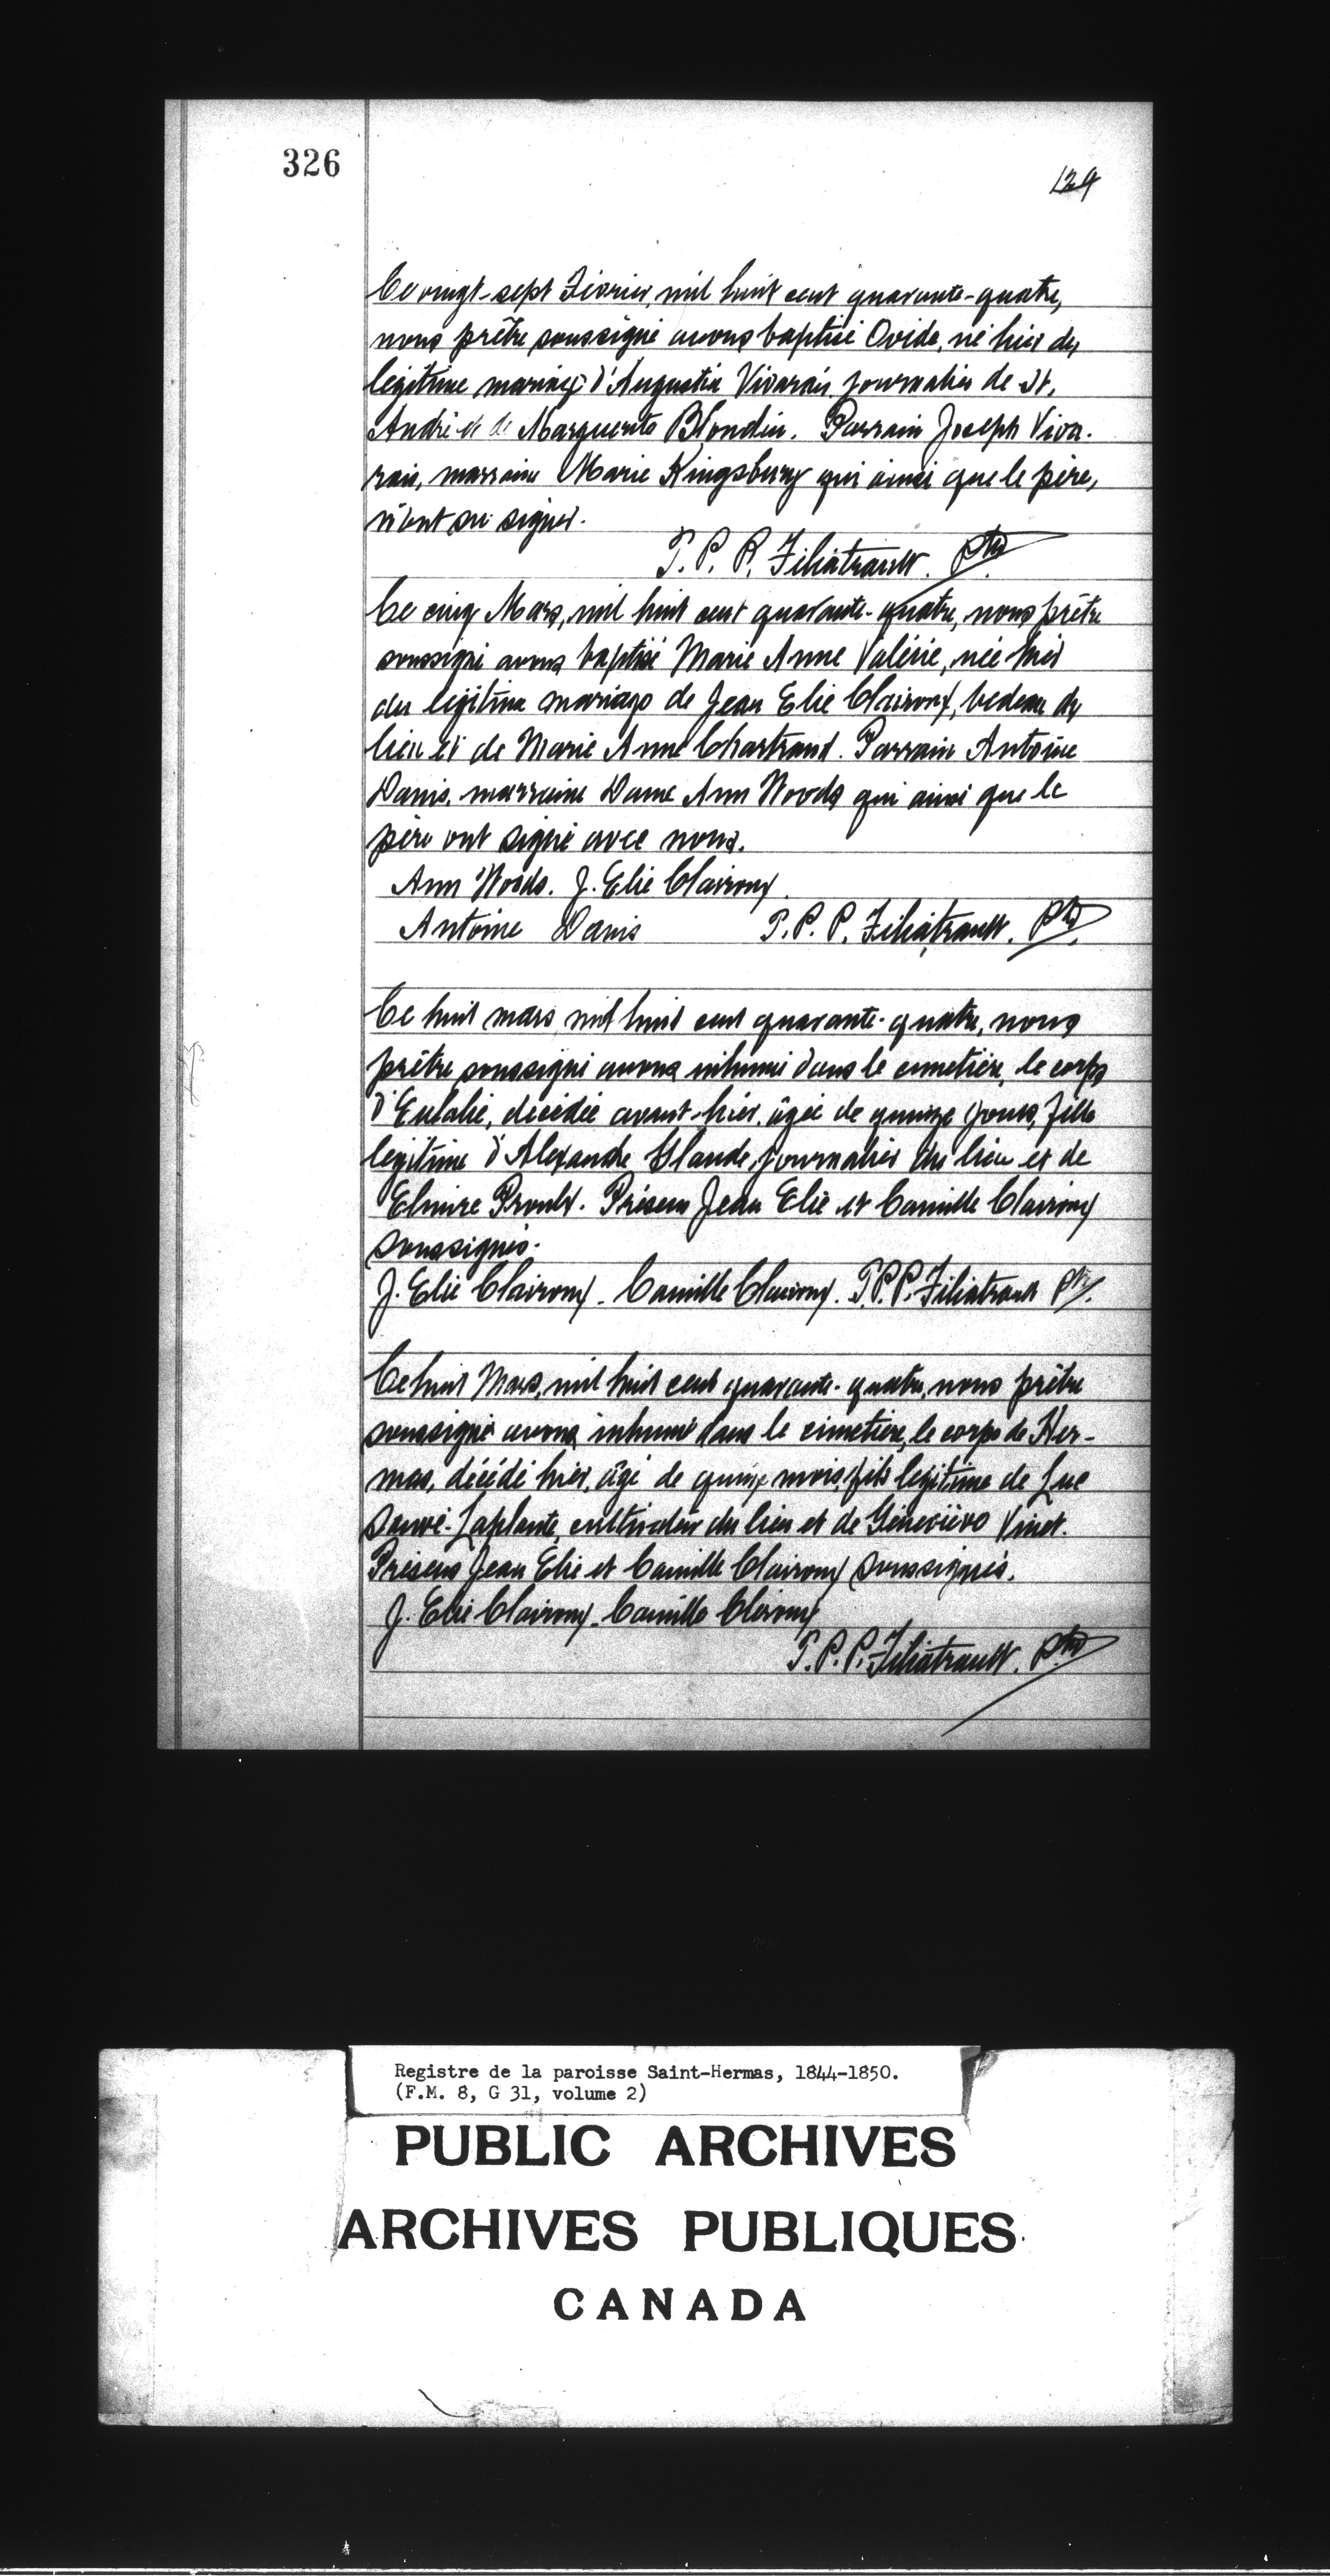 326
129
Ce vingt-sept Février, mil huit cent quarante-quatre,
nous prêtre soussigné avons baptisé Ovide, né hier du
légitime mariage d'Augustin Vivarais, journalier de St.
André et de Marguerite Blondin. Parrain Joseph Viva-
rais, marraine Marie Kingsbury qui ainsi que le père,
n'ont su signer.
T. P. P. Filiatrault. Ptre
Ce cinq Mars, mil huit cent quarante-quatre, nous prêtre
soussigné avons baptisé Marie Anne Valérie, née hier
du légitime mariage de Jean Elie Clairoux, bedeau du
lieu et de Marie Anne Chartrand. Parrain Antoine
Danis, marraine Dame Ann Woods qui ainsi que le
père ont signé avec nous.
Ann Woods. J. Elie Clairoux.
Antoine Danis T. P. P. Filiatrault. Ptre
Ce huit mars mil huit cent quarante-quatre, nous
prêtre soussigné avons inhumé dans le cimetière, le corps
d'Eulalie, décédée avant-hier, âgée de quinze jours, fille
légitime d'Alexandre Hande, journalier du lieu et de
Elmire Proulx. Présens Jean Elie et Camille Clairoux
soussignés.
J. Elie Clairoux - Camille Clairoux. T.P.P. Filiatrault Ptr.
Ce huit Mars, mil huit cent quarante-quatre, nous prêtre
soussigné avons inhumé dans le cimetière, le corps de Her-
mas, décédé hier, âgé de quinze mois, fils légitime de Luc
Sauvé-Laplante, cultivateur du lieu et de Géneviève Vinet.
Présens Jean Élie et Camille Clairoux soussignés.
J. Elie Clairoux - Camille Cleroux
T. P. P. Filiatrault. Ptre
Registre de la paroisse Saint-Hermas, 1844-1850.
(F.M. 8, G 31, volume 2)
PUBLIC ARCHIVES
ARCHIVES PUBLIQUES
CANADA